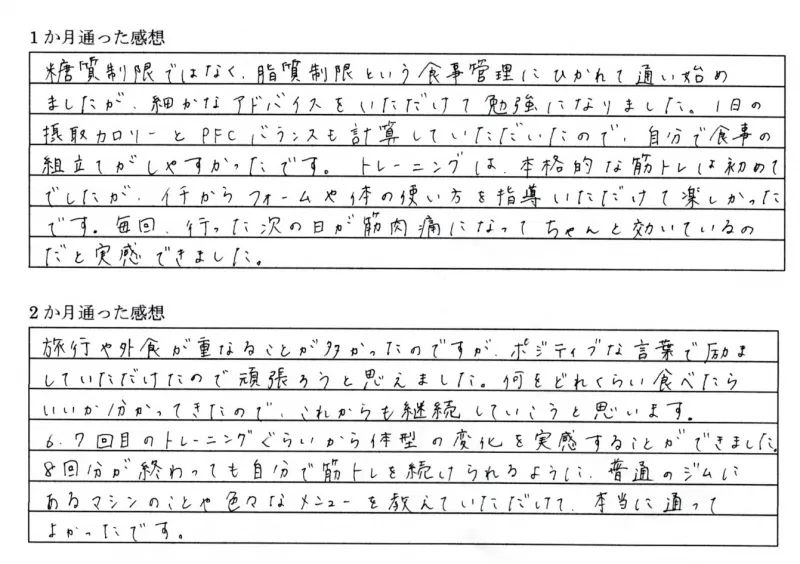 1か月通った感想
糖質制限ではなく、脂質制限という食事管理にひかれて通い始め
ましたが、細かなアドバイスをいただけて勉強になりました。1日の
摂取カロリーとPFCバランスも計算していただいたので、自分で食事の
組立てがしやすかったです。トレーニングは、本格的な筋トレは初めて
でしたが、イチからフォームや体の使い方を指導いただけて楽しかった
です。毎回、行った次の日が筋肉痛になってちゃんと効いているの
だと実感できました。
2か月通った感想
旅行や外食が重なることが多かったのですが、ポジティブな言葉で励ま
していただけたので頑張ろうと思えました。何をどれくらい食べたら
いいか分かってきたので、これからも継続していこうと思います。
6.7回目のトレーニングぐらいから体型の変化を実感することができました。
8回分が終わっても自分で筋トレを続けられるように、普通のジムに
あるマシンのことや色々なメニューを教えていただけて、本当に通って
よかったです。